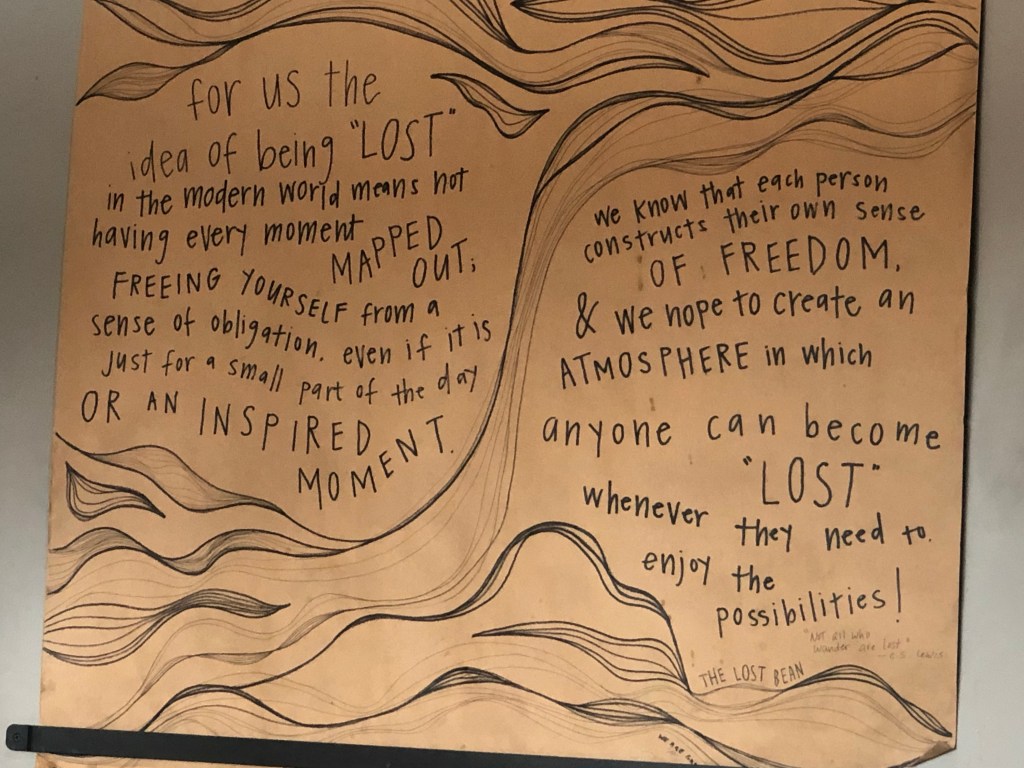 for us the
idea of being "LOST"
in the modern world means not
having every moment MAPPED
OUT;
FREEING YOURSELF from a
sense of obligation, even if it is
just for a small part of the day
OR AN INSPIRED
MOMENT.
we know that each person
constructs their own sense
OF FREEDOM,
& we hope to create an
ATMOSPHERE in which
anyone can become
"LOST"
whenever they need to.
enjoy the
possibilities!
"Not all who
wander are lost"
- C.S. Lewis
THE LOST BEAN
we are